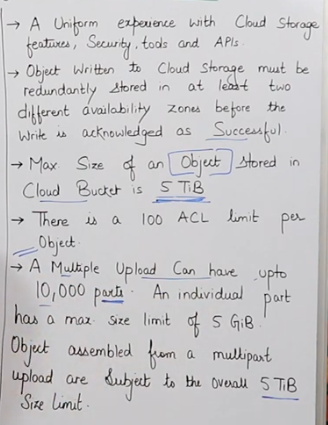 → A Uniform experience with Cloud Storage
features, Security, tools and APIs.
→ Object Written to Cloud Storage must be
redundantly stored in at least two
different availability zones before the
Write is acknowledged as Successful.
→ Max Size of an Object stored in
Cloud Bucket is 5 TiB
→ There is a 100 ACL limit per
Object.
→ A Multiple Upload Can have upto
10,000 parts. An individual part
has a max. size limit of 5 GiB.
Object assembled from a multipart
upload are Subject to the overall 5 TiB
Size limit.